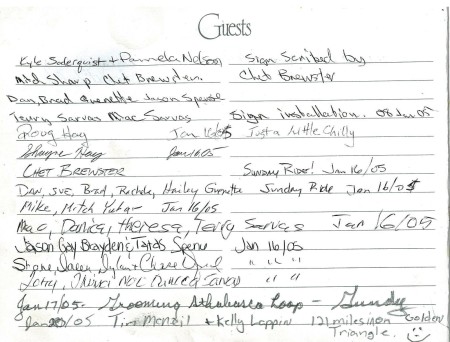 Guests
Kyle Soderquist + Pamela Nelson Sign Scribed by
Mild Sharp Chet Brewster. Chet Brewster
Dan, Brad Jason Spence
Terry Sarvas Mac Sarvas Sign installation. 08 Jan 05
Doug Hay Jan 16/05 Just a Little Chilly
Shayne Hay Jan 16 05
CHET BREWSTER SUNDAY RIDE! JAN 16/05
Dan, Sue, Brad, Hailey Sunday Ride Jan 16/05
Mike, Mitch Jan 16/05
Mac, Danica, Theresa, Terry Sarvas Jan 16/05
Jason Gay Brayden & Spence Jan 16/05
Dylan + " " "
" "
Jan 17/05 - Grooming Athabasca Loop -
/05 Tim + Kelly Lappin 121 miles on Golden
Triangle.